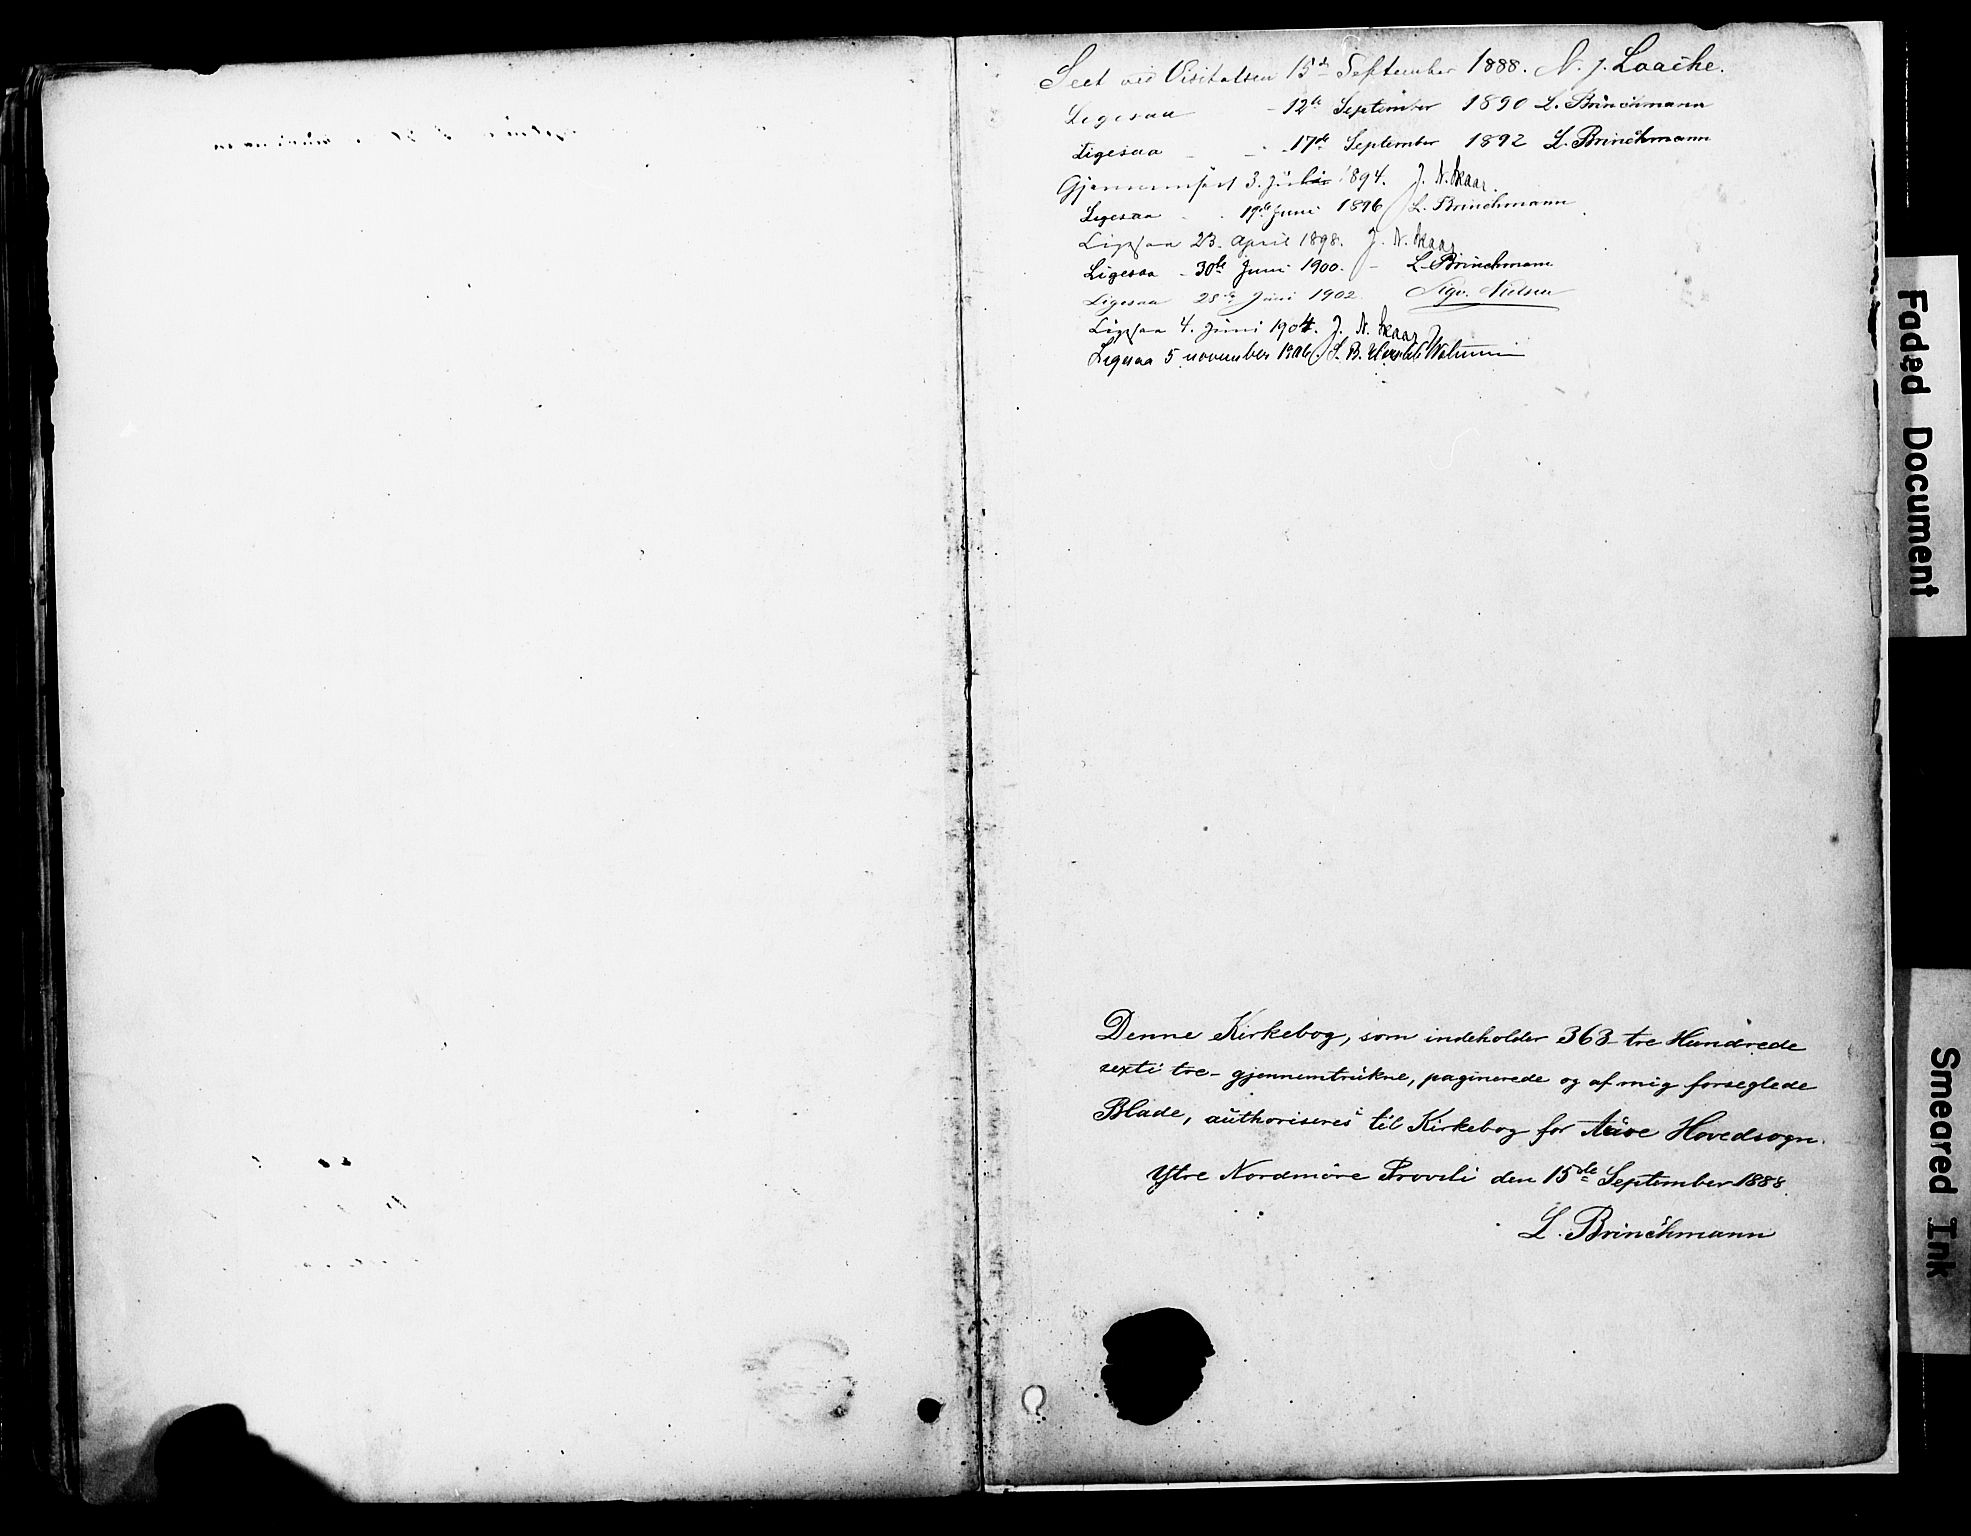 Seet ved Visitatsen 15de September 1888. N. J. Laache.
Ligesaa - 12te September 1890 L. Brinchmann
Ligesaa - - 17de September 1892 L. Brinchmann
Gjennemført 3. Juli 1894. J. N. Skaar.
Ligesaa - 19de Juni 1896 L. Brinchmann
Ligesaa 23. April 1898. J. N. Skaar
Ligesaa - 30te Juni 1900. - L. Brinchmann
Ligesaa 28de Juni 1902. Sigv. Nielsen
Ligesaa 4. Juni 1904. J. N. Skaar
Ligesaa 5 november 1906. S. B.
Denne Kirkebog, som indeholder 363 - tre Hundrede
sexti tre - gjennemtrukne, paginerede og af mig forseglede
Blade, authoriseres til Kirkebog for Aure Hovedsogn.
Ytre Nordmøre Provsti den 15de September 1888.
L. Brinchmann
Faded Document
Smeared Ink